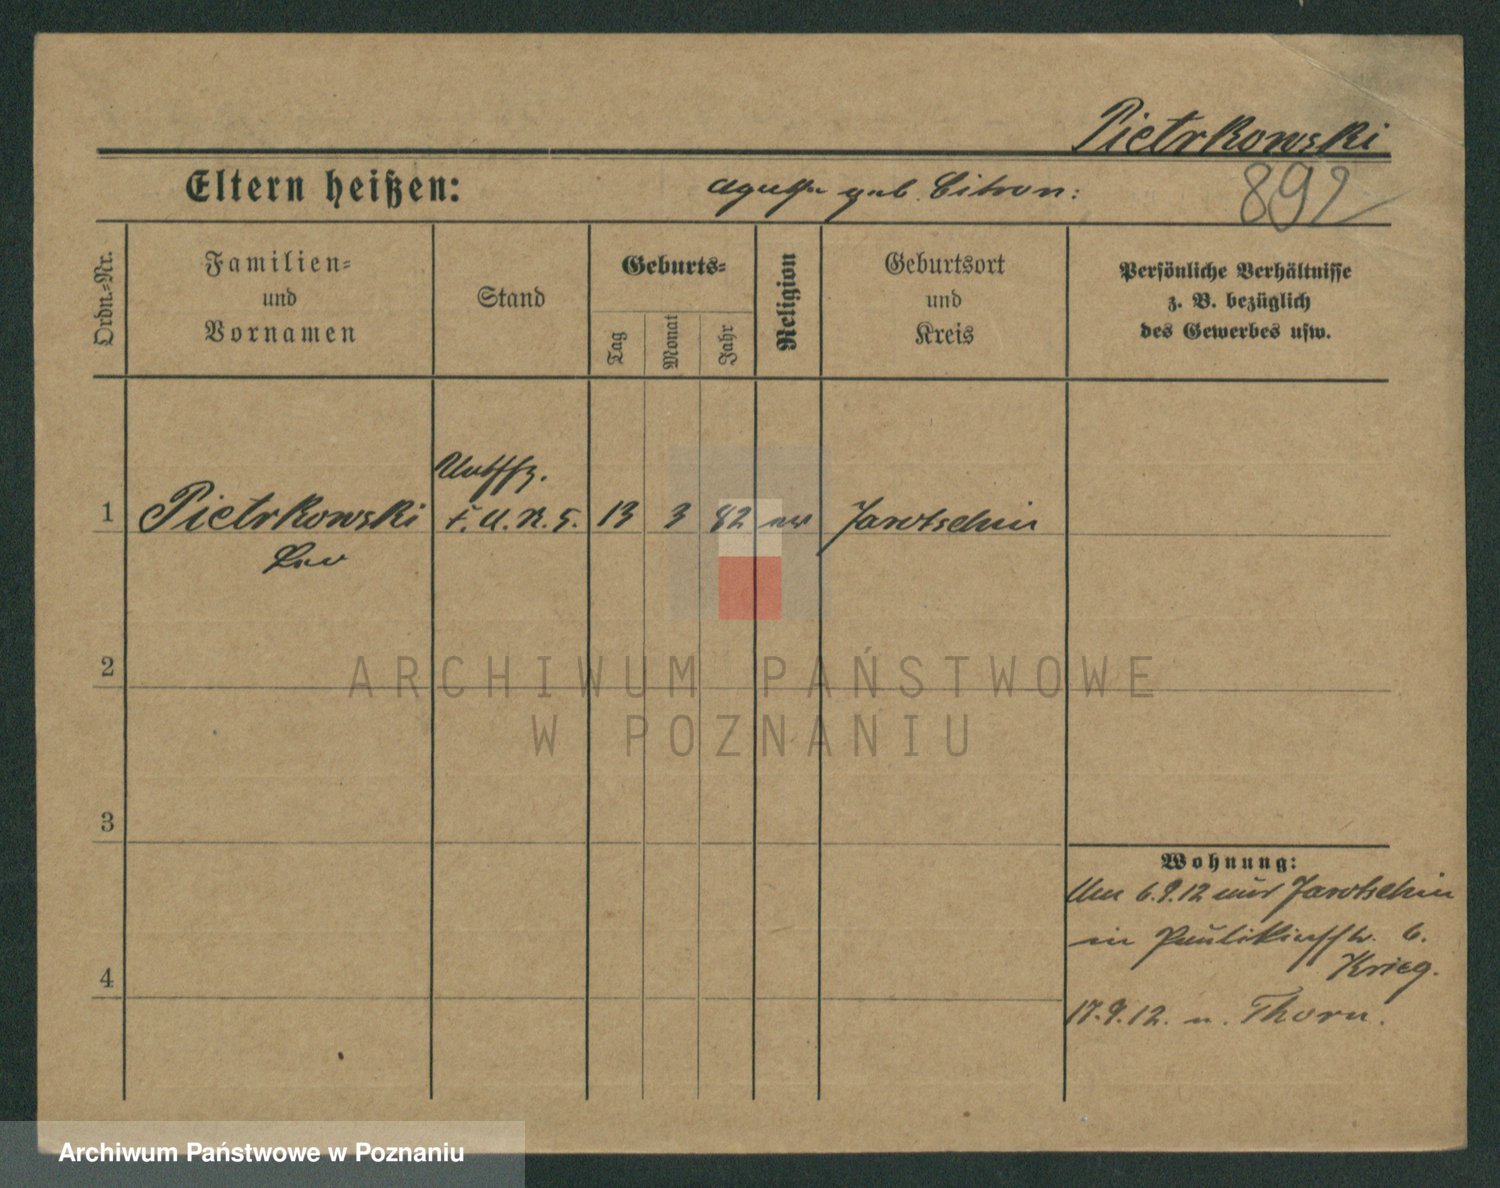 Pietrkowski
Eltern heißen:
geb. Citron:
892
Ordn.-Nr.
Familien-
und
Vornamen
Stand
Geburts-
Tag
Monat
Jahr
Religion
Geburtsort
und
Kreis
Persönliche Verhältnisse
z. B. bezüglich
des Gewerbes usw.
1
Pietrkowski
13
3
82
Jarotschin
Leo
2
ARCHIWUM PAŃSTWOWE
W POZNANIU
3
Wohnung:
6.9.12 Jarotschin
in Paulikirchstr. b.
Krieg.
4
17.9.12. n. Thorn.
Archiwum Państwowe w Poznaniu